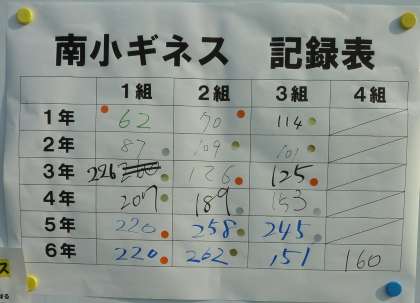 南小ギネス 記録表
1組 2組 3組 4組
1年 62 70 114
2年 87 109 101
3年 226 200 126 125
4年 207 189 153
5年 220 258 245
6年 220 262 151 160
ス